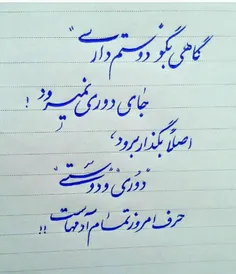 گاهی بگو دوستم داری "
جای دوری نمیرود !
اصلاً بگذار برود ،
"دوری و دوستی"
حرف امروز تمام آدمهاست !!